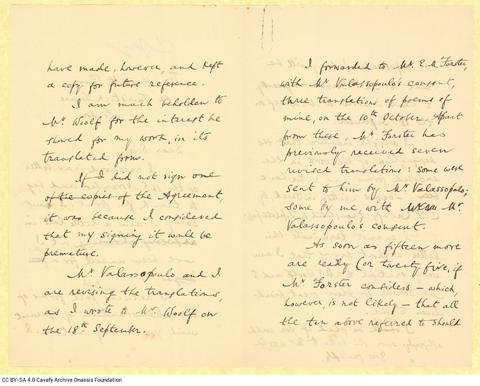 have made, however, and kept
a copy for future reference.
I am much beholden to
Mr Woolf for the interest he
showed for my work, in its
translated form.
If I did not sign one
of the copies of the Agreement,
it was because I considered
that my signing it would be
premature.
Mr Valassopoulo and I
are revising the translations,
as I wrote to Mr. Woolf on
the 18th September.
I forwarded to Mr. E. M. Forster,
with Mr Valassopoulo's consent,
three translations of poems of
mine, on the 10th October. Apart
from these, Mr Forster has
previously received seven
revised translations: Some were
sent to him by Mr Valassopoulo;
some by me, with Mr
Valassopoulo's consent.
As soon as fifteen more
are ready (or twenty five, if
Mr Forster considers – which,
however, is not likely – that all
the ten above referred to should
CC BY-SA 4.0 Cavafy Archive Onassis Foundation